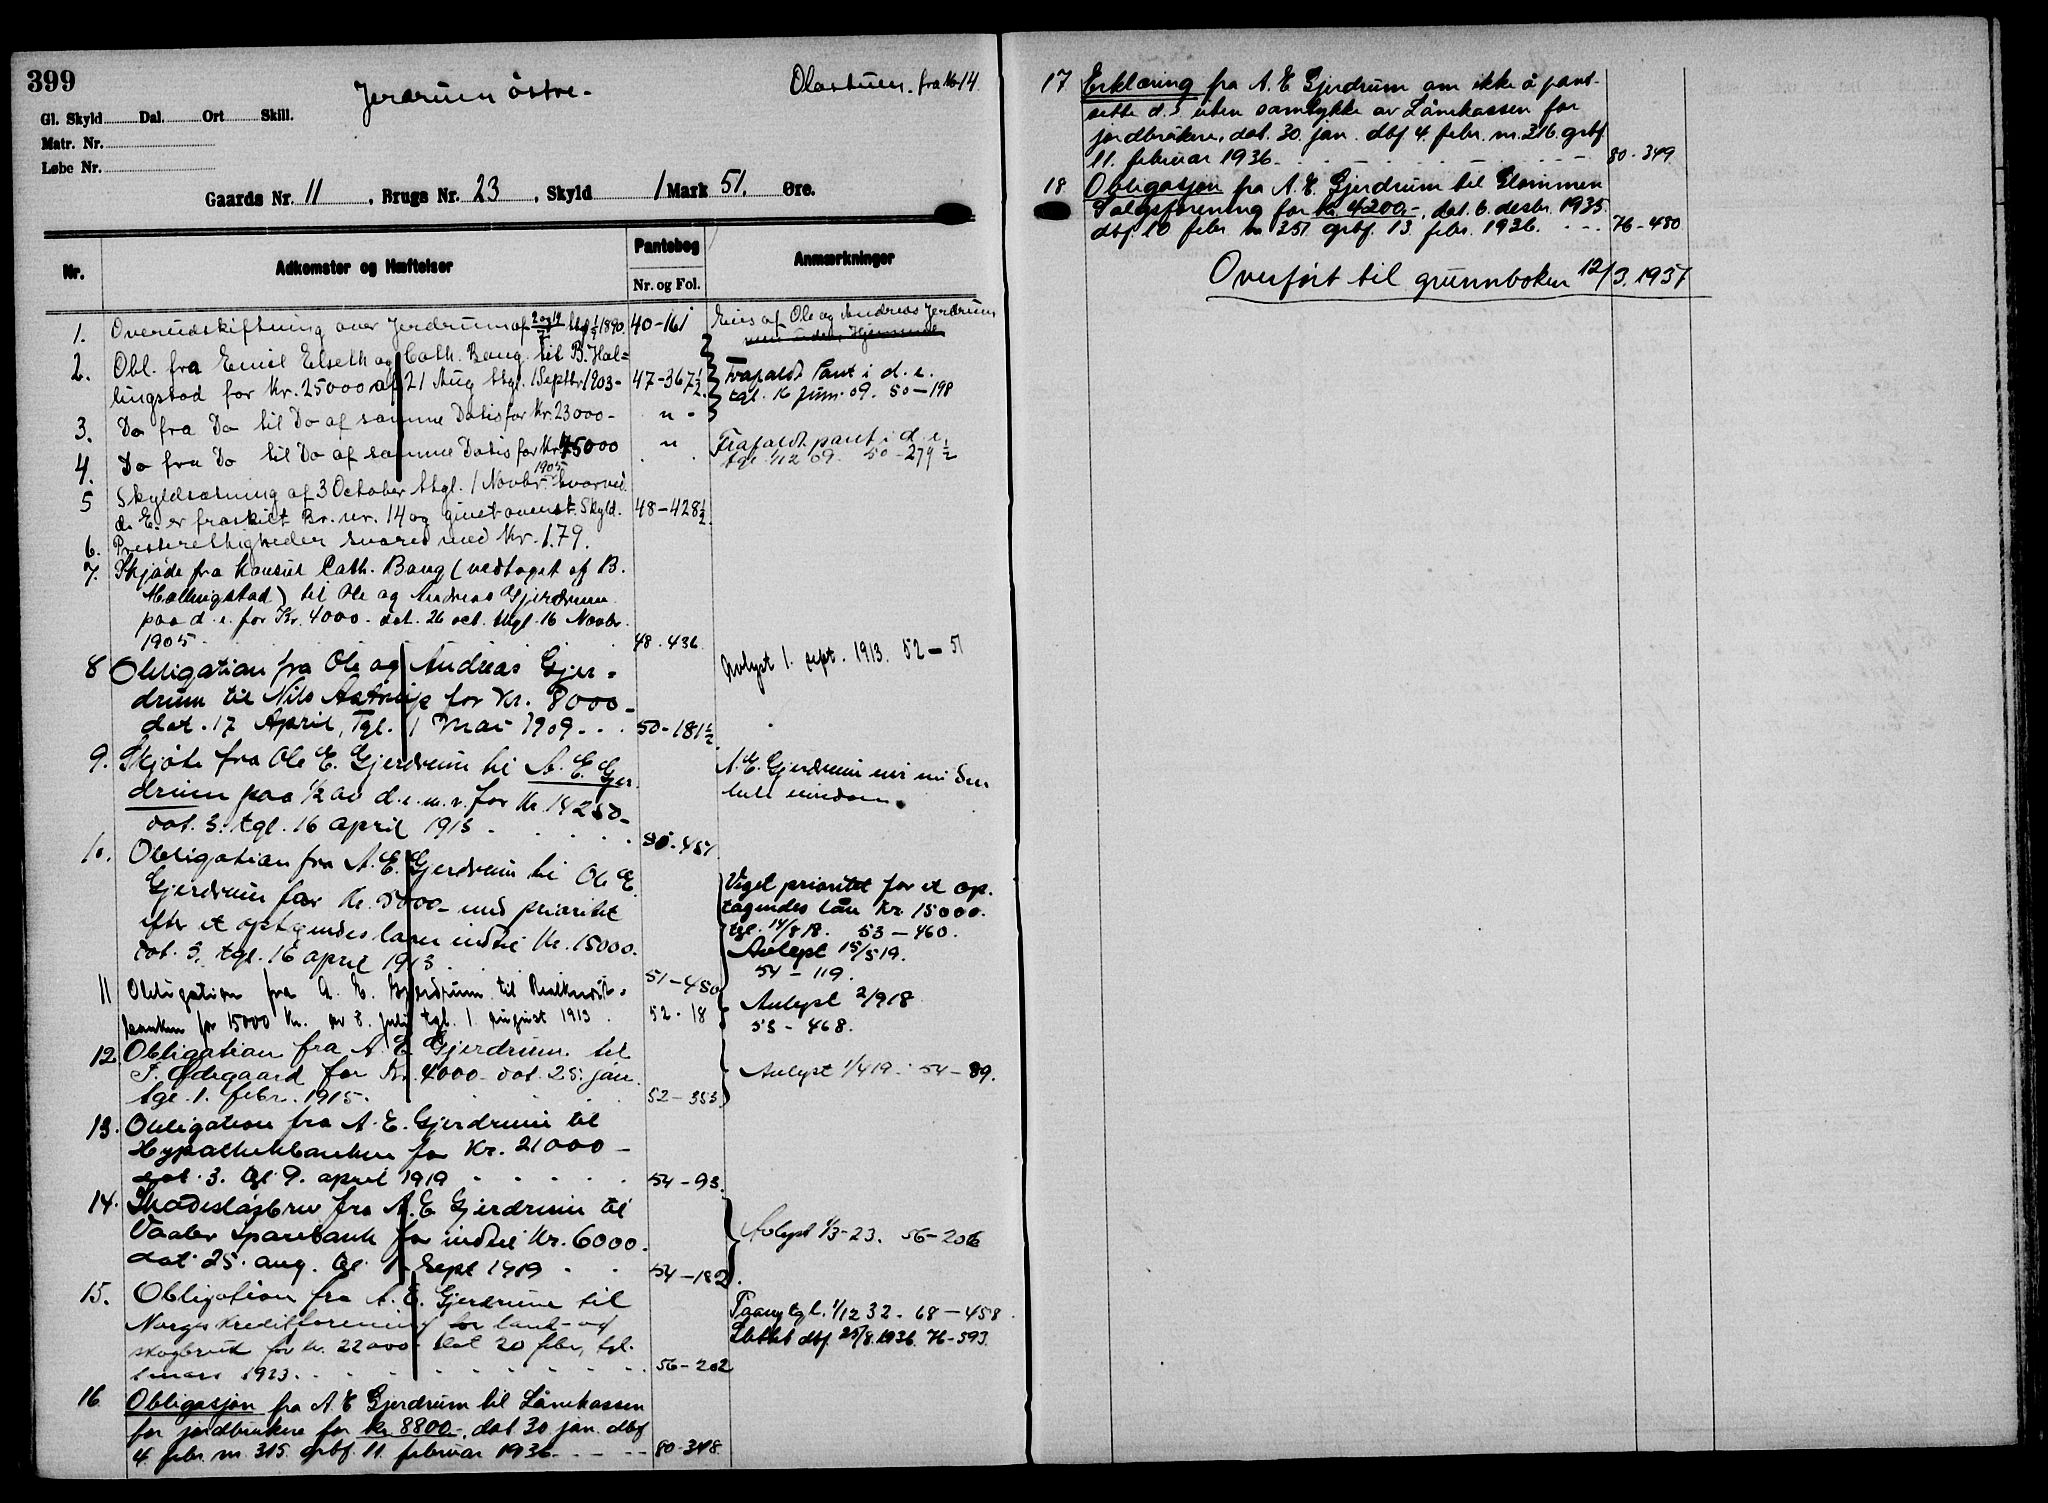 399
Jerdrum östre.
Olastuen. fra No 14
Gl. Skyld Dal. Ort Skill.
Matr. Nr.
Løbe Nr.
Gaards Nr. 11, Brugs Nr. 23, Skyld 1 Mark 51. Øre.
Nr.
Adkomster og Hæftelser
Pantebog
Nr. og Fol.
Anmærkninger
1. Overudskiftning over Jerdrum af thgl 1890. 40-161
Eies af Ole og Andreas Jerdrum
2. Obl. fra Emil Elseth og Cath. Bang til B. Hal=
lingstad for Kr. 25000 af 21 Aug thgl. 1 Septbr 1903- 47-367½
Frafaldt Pant i d. e.
tgl. 16 Juni 09. 50-198
3. Do fra Do til Do af samme Datis for Kr. 23000- " -
4. Do fra Do til Do af samme Datis for Kr. 45000 "
Frafaldt pant i d. e.
tgl. 1/12 09. 50-279½
5 Skyldsætning af 3 October thgl. 1 Novbr. 1905 hvorved
d. E. er fraskilt Br. nr. 14 og givet ovenst. Skyld. 48-428½
6. Presterettigheder svares med Kr. 1.79.
7. Skjøde fra Konsul Cath. Bang (vedtaget af B.
Hallingstad) til Ole og Andreas Gjerdrum
paa d. e. for Kr. 4000- dat. 26 oct. thgl. 16 Novbr.
1905. 48.436
8 Obligation fra Ole og Andreas Gjer-
drum til Nils Aastrup for Kr. 8000-
dat. 17 April, Tgl. 1 Mai 1909 . . . 50-181½
Avlyst 1. sept. 1913. 52-51
9. Skjøte fra Ole E. Gjerdrum til A. E. Gjer
drum paa ½ av d. e. m. v. for Kr. 14250-
dat. 3. tgl. 16 april 1913 - 50-451
A. E. Gjerdrum eier nu den
hele eiendom.
10. Obligation fra A. E. Gjerdrum til Ole E.
Gjerdrum for Kr. 5000- med prioritet
efter et optagendes laan indtil Kr. 15000.
dat. 3. tgl. 16 april 1913. 51-450
Veget prioritet for et op.
tagendes lån Kr. 15000.
tgl. 14/8 18. 53-460.
Avlyst 15/5 19.
54-119.
11 Obligation fra A. E. Gjerdrum til Realkredit-
banken for 15000 Kr. av 8. juli tgl. 1. august 1913. 52-18
Avlyst 2/9 18
53-468.
12. Obligation fra A. E. Gjerdrum til
T. Ødegaard for Kr. 4000- dat. 25. jan.
tgl. 1. febr. 1915. 52-353
Avlyst 1/4 19. 54-89.
13. Obligation fra A. E. Gjerdrum til
Hypothekbanken for Kr. 21000-
dat. 3. tgl 9. april 1919 54-93.
14. Skadesløsbrev fra A. E Gjerdrum til
Vaaler Sparebank for indtil Kr. 6000.
dat. 25. aug. tgl. 1 Sept 1919 54-182.
Avlyst 1/3-23. 56-206
15. Obligation fra A. E. Gjerdrum til
Norges Kreditforening for land- og
skogbruk for kr. 22000- dat 20 febr, tgl.
1 mars 1923. 56-202
Paany tgl. 1/12 32 - 68-458
Slettet dbf. 25/8. 1936. 76-593.
16 Obligasjon fra A. E Gjerdrum til Lånekassen
for jordbrukere for kr. 8800-, dat 30 jan. dbf
4. febr. nr. 315. grbf. 11. februar 1936 80-348.
17 Erklæring fra A. E Gjerdrum om ikke å pant-
sette d. e. uten samtykke av Lånekassen for
jordbrukere, dat. 30. jan. dbf 4. febr. nr. 316. grbf
11. februar 1936 80-349
18 Obligasjon fra A. E. Gjerdrum til Glommen
Salgsforening for kr. 4200.-, dat. 6. desbr. 1935.
dbf. 10 febr. nr 351 grbf. 13. febr. 1936. 76-480
Overført til grunnboken 12/3. 1951